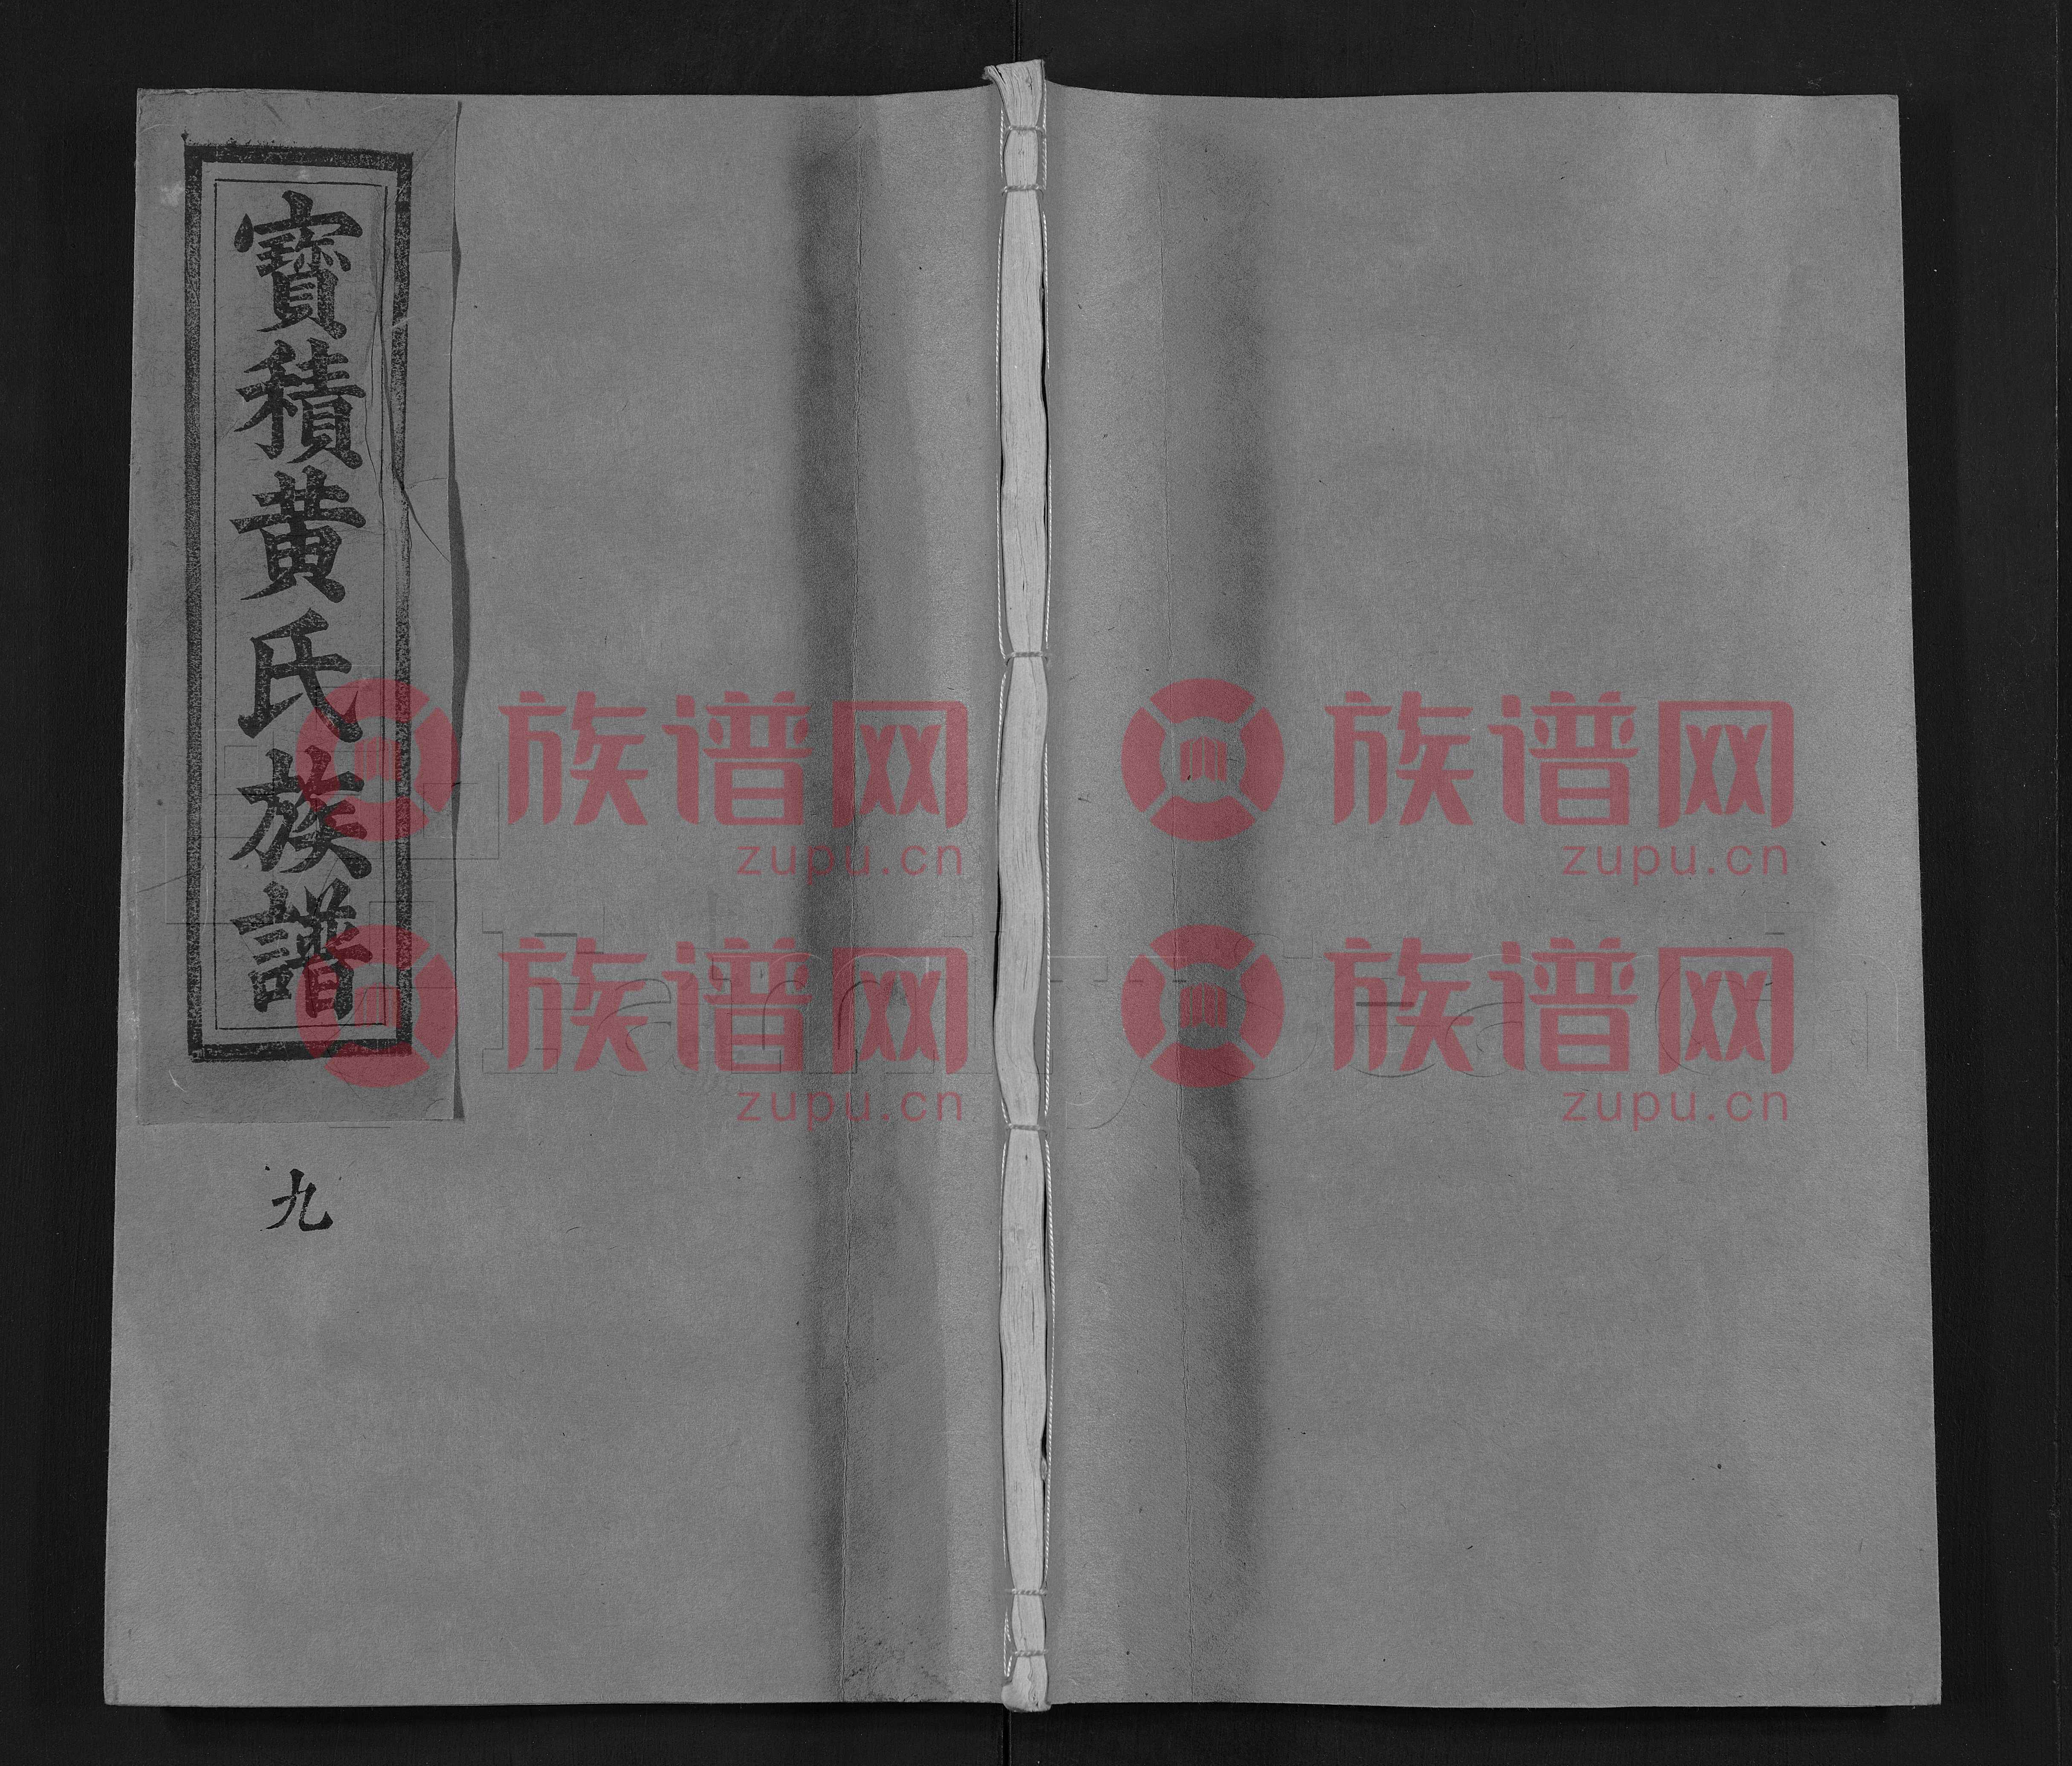 寳積黄氏族譜
九
族谱网 族谱网
zupu.cn zupu.cn
族谱网 族谱网
zupu.cn zupu.cn
FamilySearch